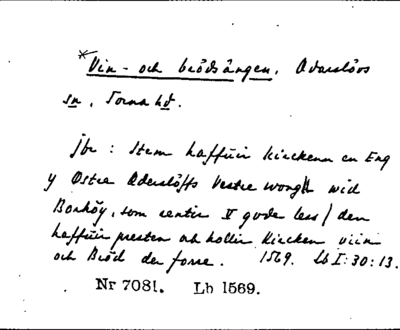 *Vin- och brödsängen, Odarslövs
sn, Torna hd.
jbr: Item haffuir kirckenn en Eng
y Østre Oderslöffs Vestre wongh wid
Borköy, som rentir V gode less / den
haffuir presten och holler kircken viin
och Bröd der forre. 1569. Lb I:30:13.
Nr 7081. Lb 1569.